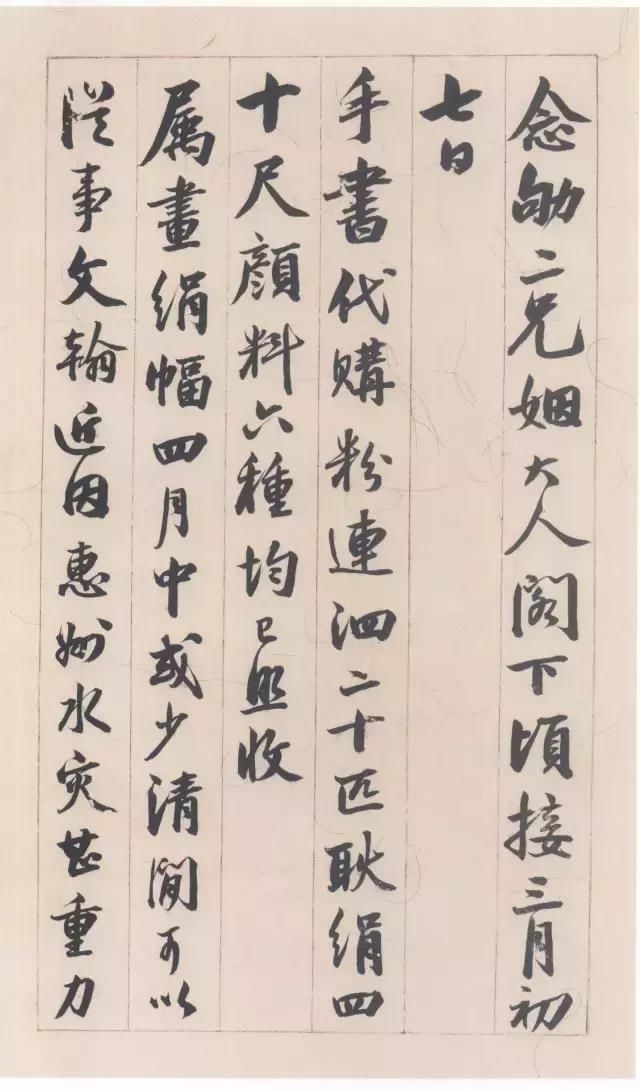 念劬二兄姻大人閣下頃接三月初
七日
手書代購粉連泗二十匹耿絹四
十尺顏料六種均已照收
属畫絹幅四月中或少清閒可以
從事文翰近因惠州水灾甚重力